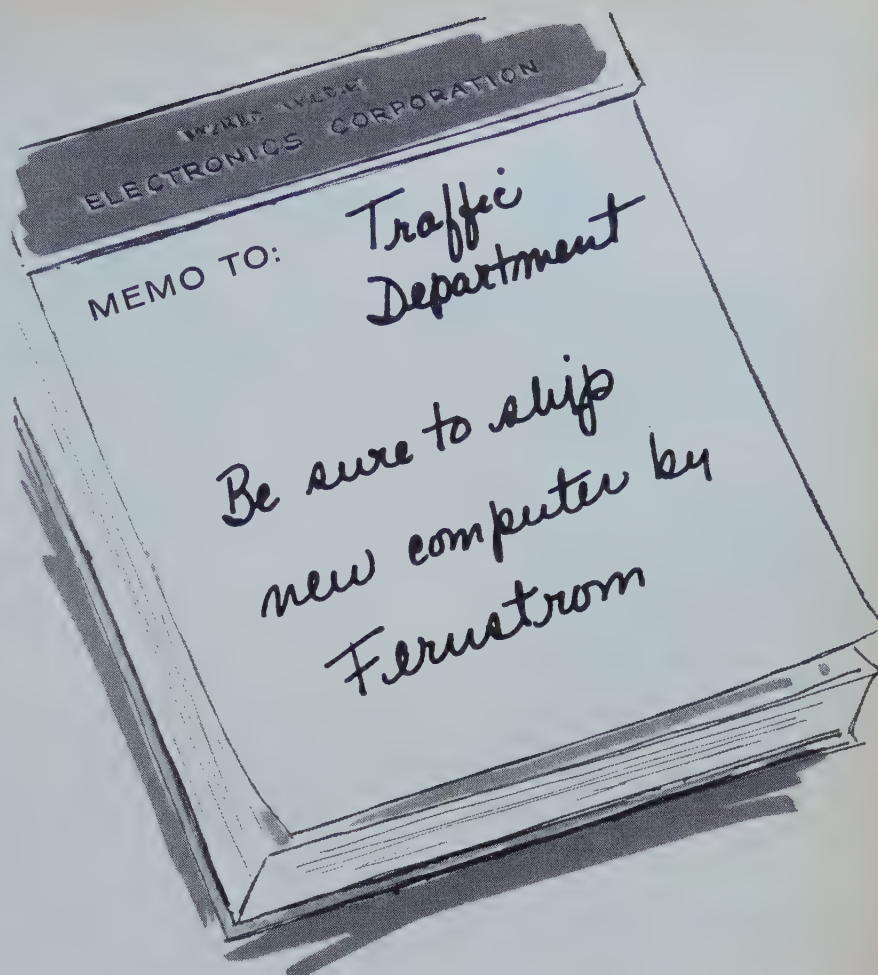 WORLD WIDE
ELECTRONICS CORPORATION
MEMO TO: Traffic
Department
Be sure to ship
new computer by
Fernstrom